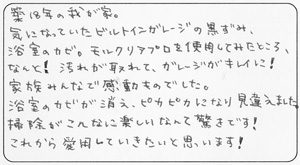 築18年の我が家。
気になっていたビルトインガレージの黒ずみ、
浴室のカビ。モルクリアプロを使用してみたところ、
なんと!汚れが取れて、ガレージがキレイに!
家族みんなで感動ものでした。
浴室のカビが消え、ピカピカになり見違えました。
掃除がこんなに楽しいなんて驚きです!
これから愛用していきたいと思います!